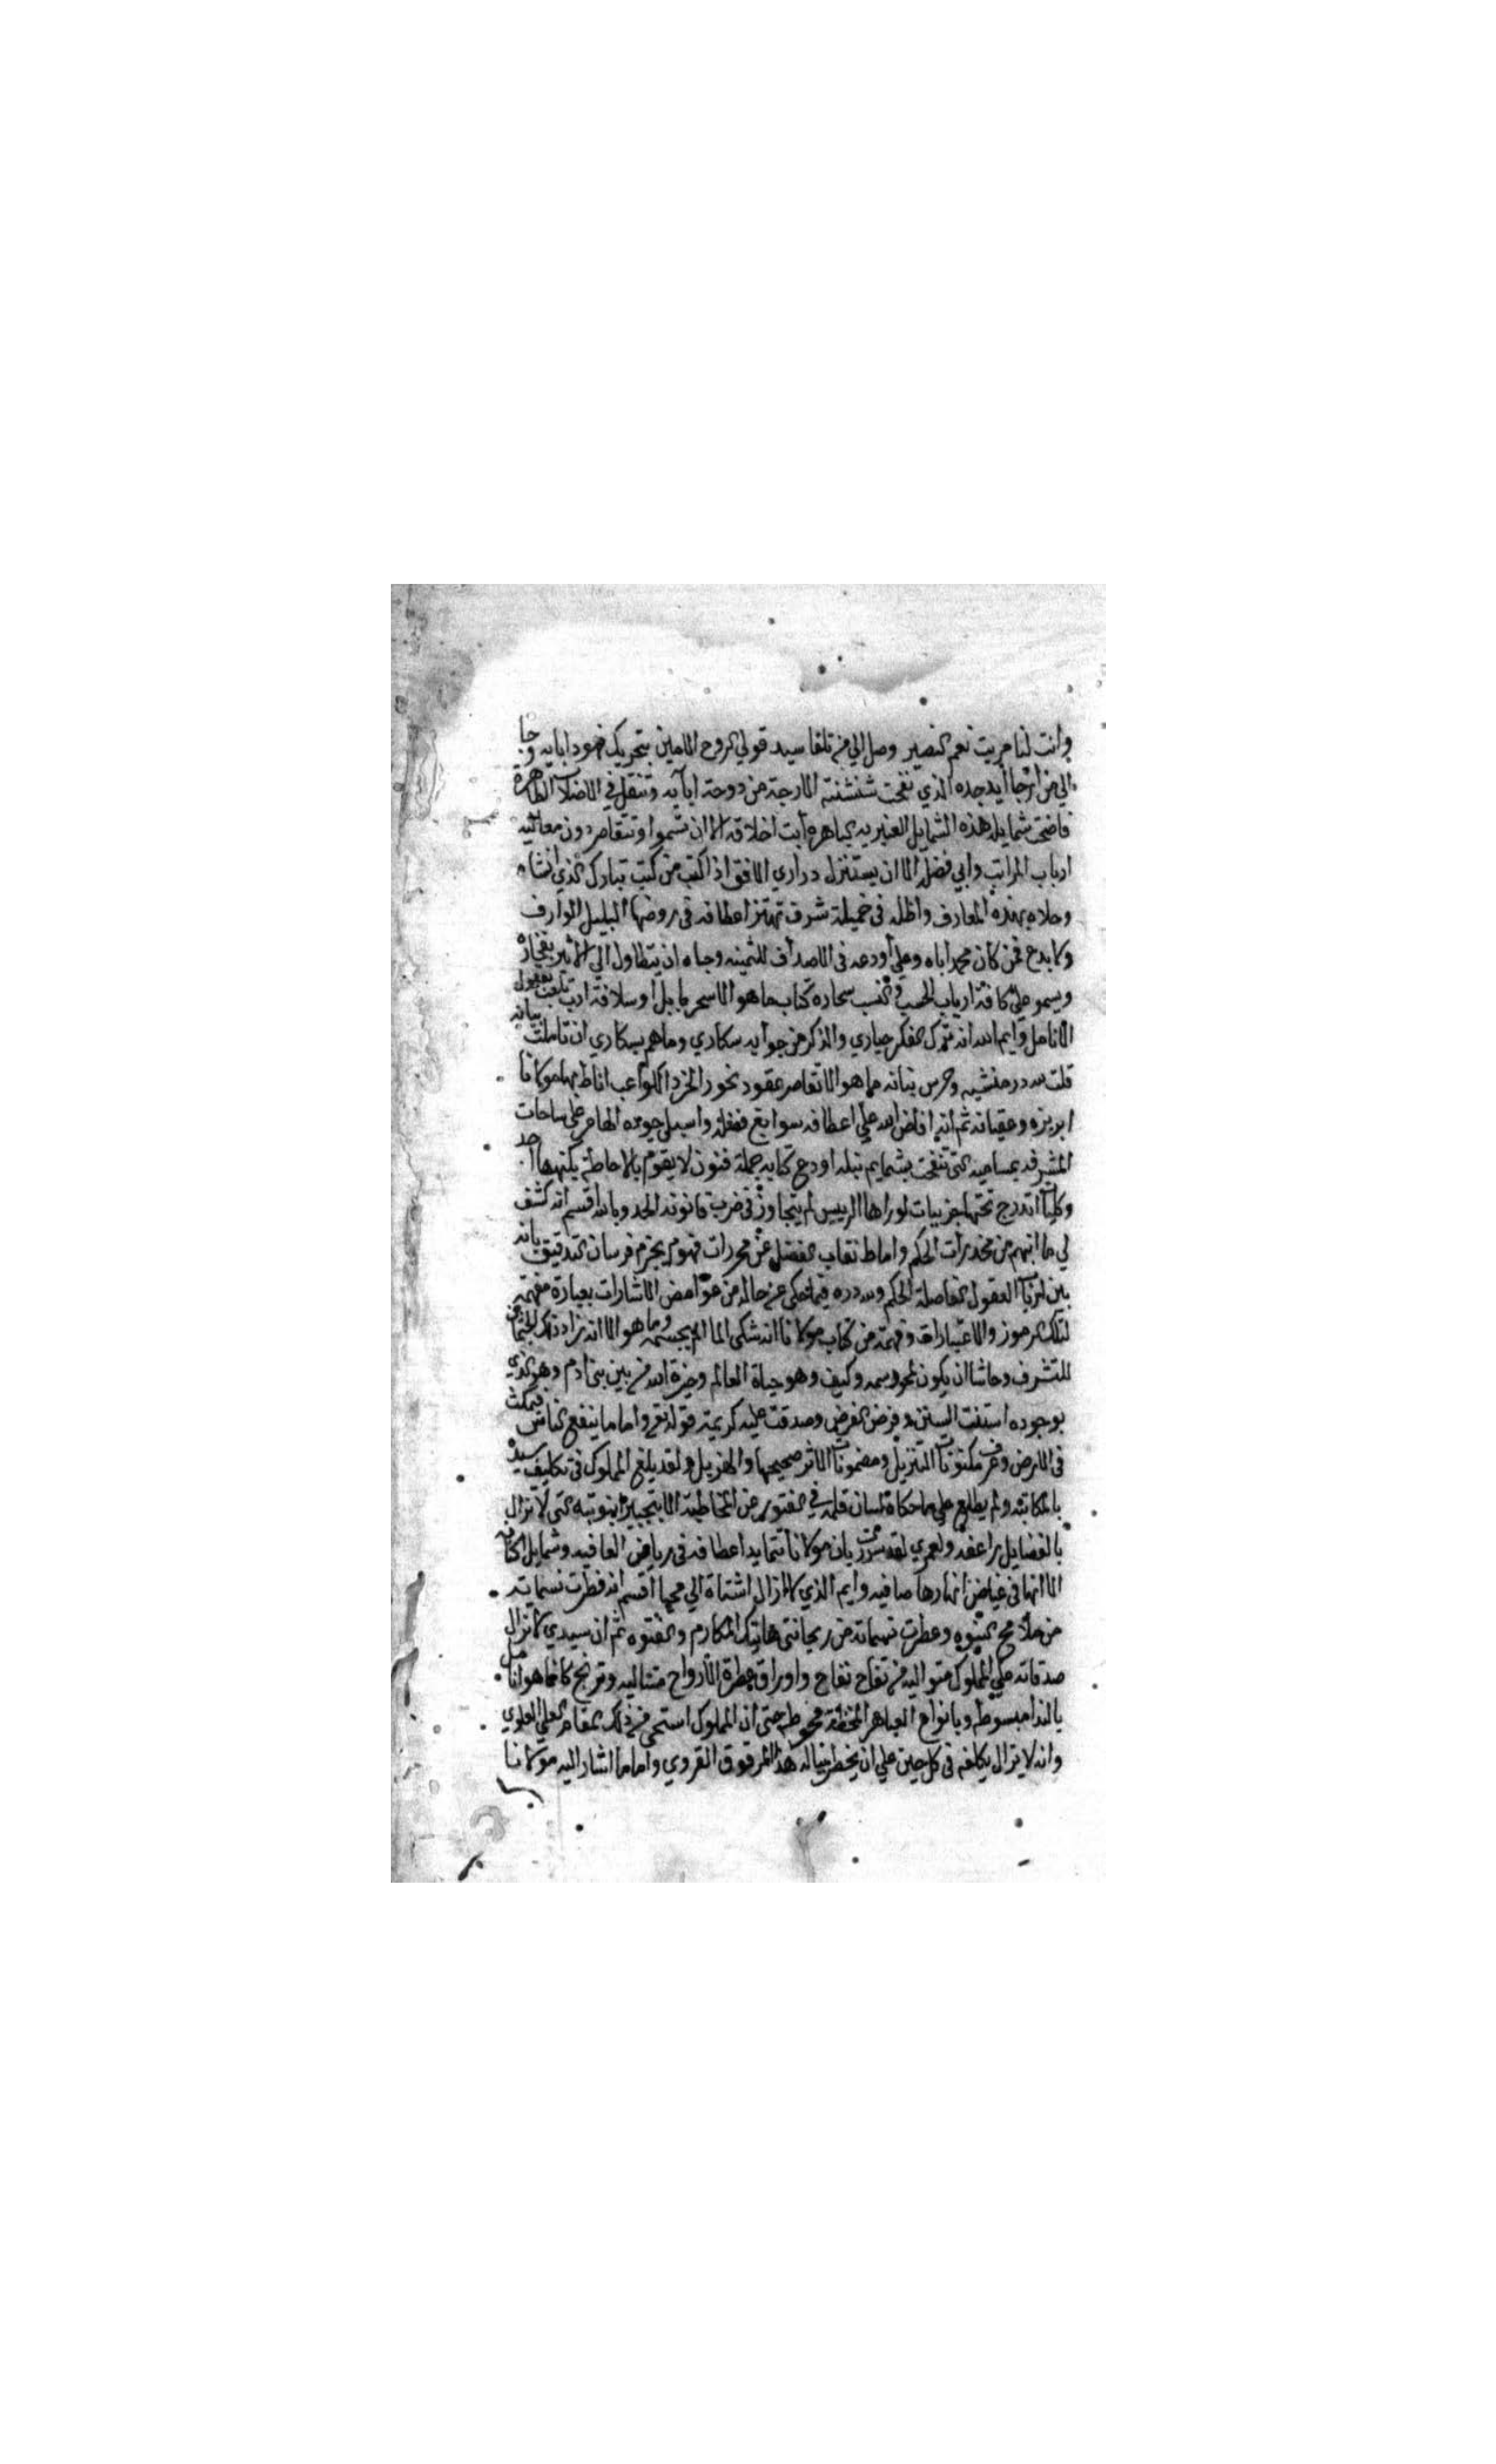 وانت لنا مريت نعم النصير وصل الي من تلقا سيد قولي الروح الامين بتحريك مهود ابايه وجا
الي من ارجا ايد جده الذي نفحت شنشنته الارجة من دوحة ابآيه وتنقل في الاصلاب الطاهرة
فاضحت شمايله هذه الشمايل العنبريه الباهرة أبت اخلاقه الا ان تسموا وتتقاصر دون معاليه
ارباب المراتب وابي فضله الا ان يستنزل دراري الافق اذا كتب من كتب تبارك الذي انشاه
وحلاه بهذه المعارف واظله في خميلة شرف تهتز اعطافه في روضها البليل الوارف
ولا بدع فمن كان محمد اباه وعلي أودعه في الاصداف الثمينه وحباه ان يتطاول الي الاثير بفخاره
ويسمو علي كافة ارباب الحسب كتاب ما هو الا سحر بابل او سلافة ادب
الانامل وايم الله انه ترك الفكر حياري والذكر من جوابه سكاري وما هم بسكاري ان تاملت بيانه
قلت لله در منشيه وحرس بنانه ما هو الا تقاصر عقود نحور الخرد الكواعب اناط بها مولانا
ابريزه وعقيانه ثم انه افاض الله علي اعطافه سوابغ فضله واسبل جوده الهامر علي ساحات
المشرفه التي تنفحت بشمايم نبله اودع كتابه جملة فنون لا يقوم بالاحاطة بكنهها احد
وكليات اندرج تحتها جزييات لو راها الرييس لم يتجاوز في ضرب قانونه الحد وبالله اقسم انه كشف
لي ما ابهم من مخدرات الحكم واماط نقاب الفضل عن فهوم يجزم فرسان التدقيق بانه
بين ارباب العقول الفاصلة الحكم ولله دره فيما حكي عن حاله من غوامض الاشارات بعبارة مفهمة
لتلك الرموز والاعتبارات وفهمت من كتاب مولانا انه شكي الما الم بجسمه وما هو الا انه
للتشرف وحاشا ان يكون وكيف وهو حياة العالم وخيرة الله من بين بني ادم وهو الذي
بوجوده استنت السنن وفرض الفرض وصدقت عليه كريمة قوله تع واما ما ينفع الناس فيمكث
في الارض وعرف مكنونات التنزيل ومضمونات الاثر صحيحها والهزيل ولقد بلغ المملوك في تكليف سيده
بالمكاتبة ولم يطلع علي ما حكاه لسان قلمه في الفتور عن المخاطبة الا التي لا تزال
بالفضايل راعفه ولعمري لقد سررت بان مولانا تتمايد اعطافه في رياض العافيه وشمايل اكنافه
الا انها في غياض انهارها صافيه وايم الذي لا ازال اشتاق الي محيا اقسم انه فطرت نسماته
من ملامح النبوه وعطرت نسماته من ريحانتي هاتيك المكارم والفتوه ثم ان سيدي لا تزال
صدقاته علي المملوك متواليه من تفاح نفاح واوراق عطرة الارواح متتاليه وترنج كانما هو انامل
بالندا مبسوطه وبانواع حتي ان المملوك استحي من ذلك المقام العلي العلوي
وانه لا يزال يكلفه في كل حين علي ان يخطر بباله هذا المرقوق القروي واما ما اشار اليه مولانا